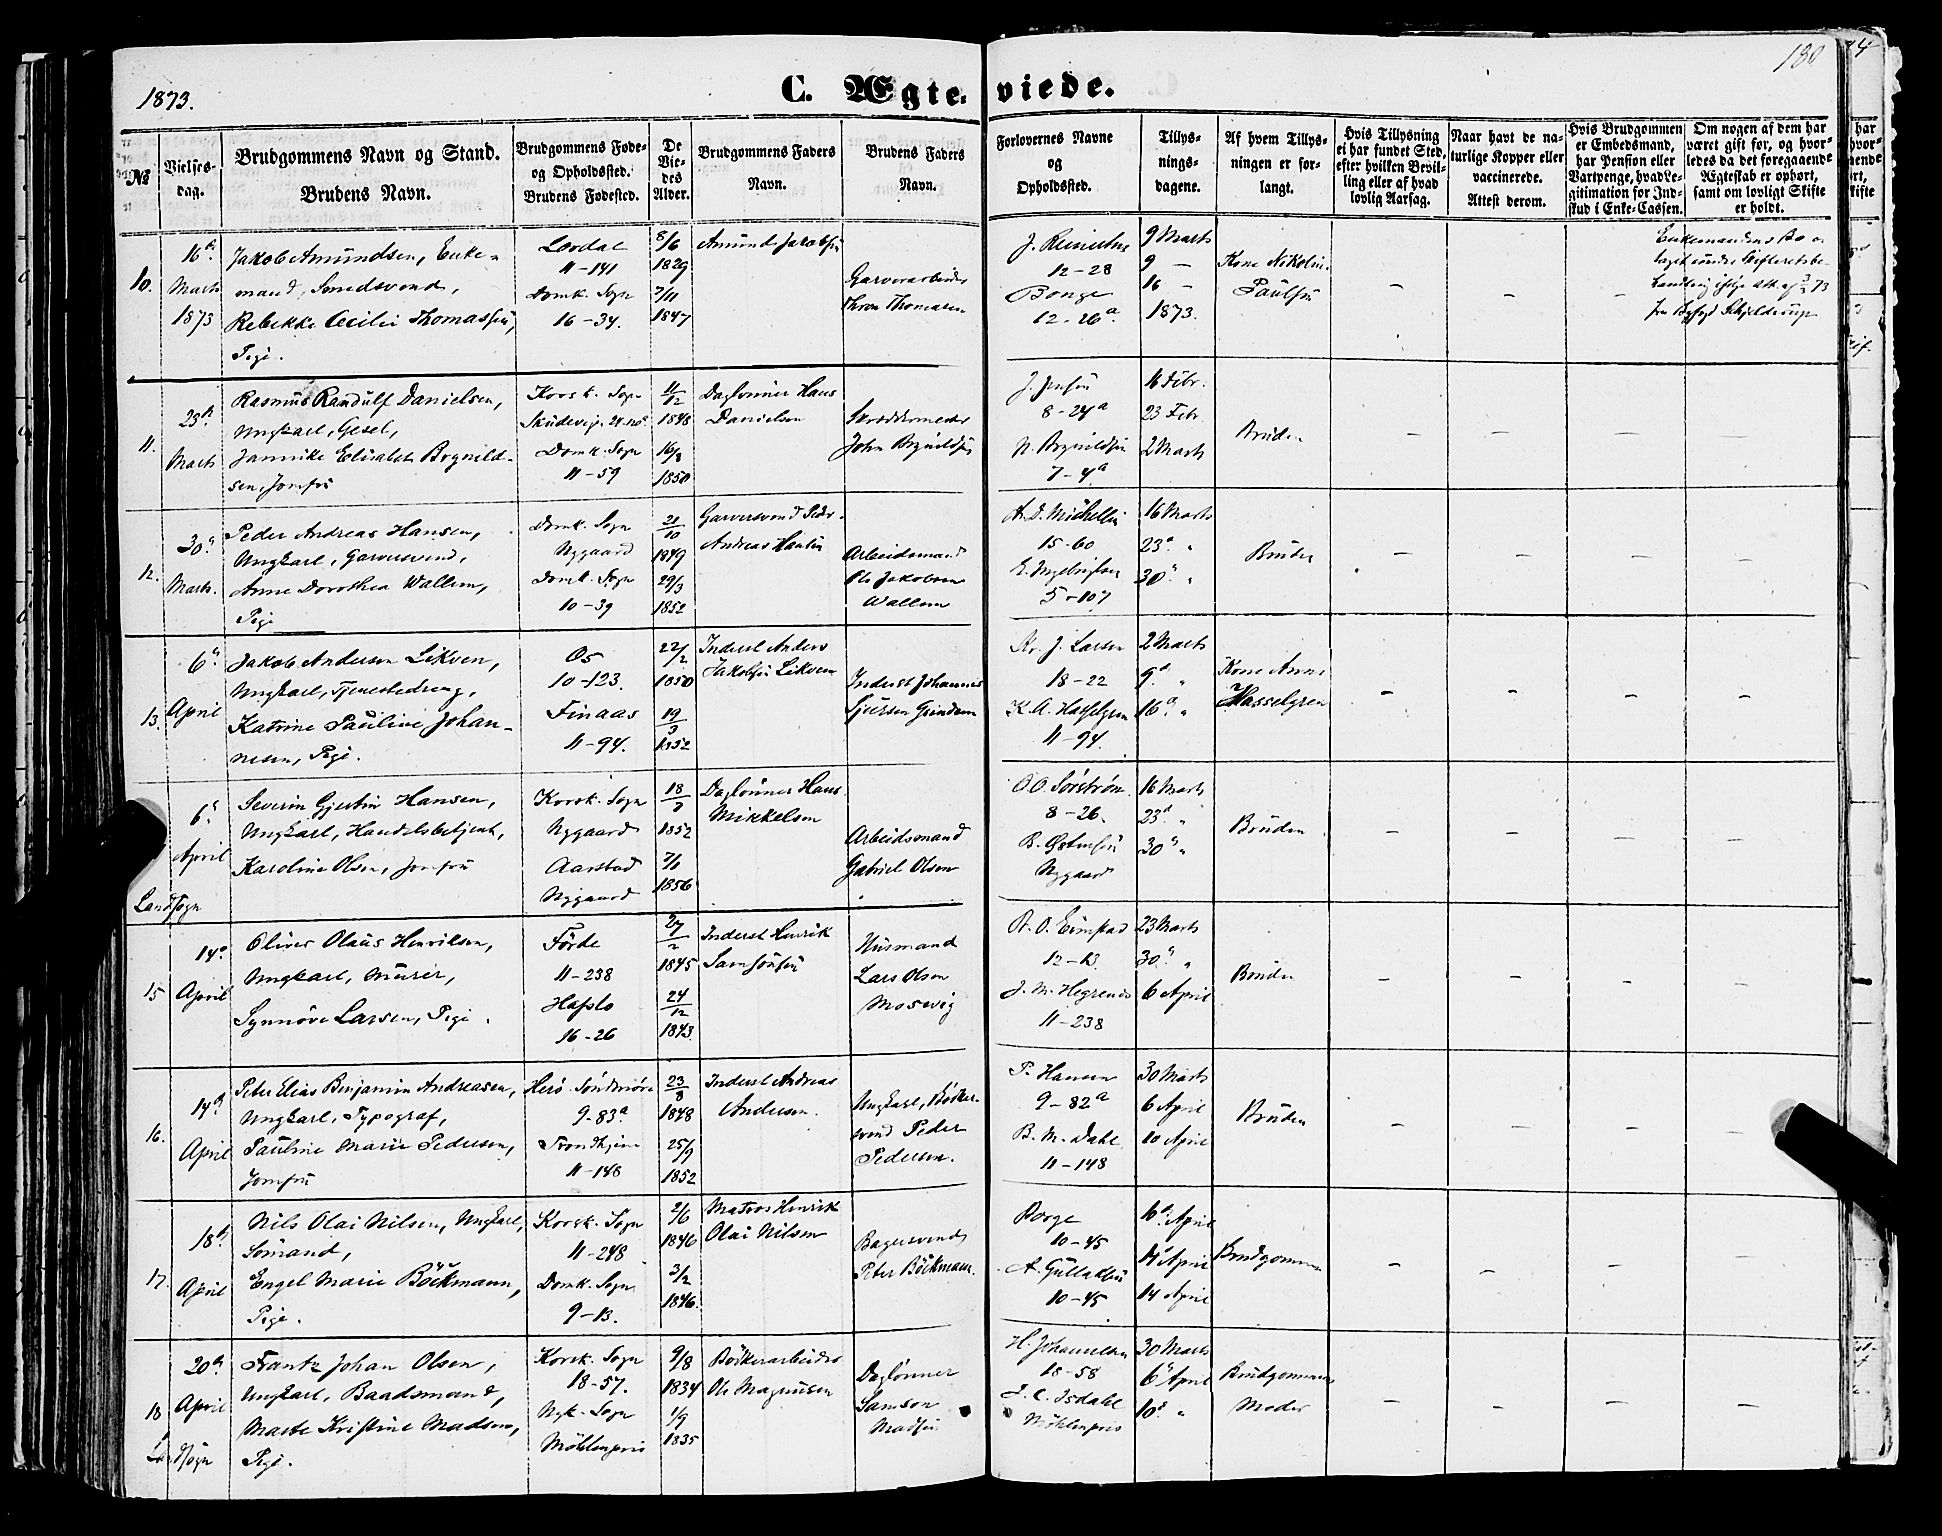 1873.
C. Ægteviede.
180
№
Vielsesdag.
Brudgommens Navn og Stand.
Brudens Navn.
Brudgommens Føde-
og Opholdssted.
Brudens Fødested.
De
Vie-
des
Alder.
Brudgommens Faders
Navn.
Brudens Faders
Navn.
Forlovernes Navne
og
Opholdssted.
Tillys-
nings-
dagene.
Af hvem Tillys-
ningen er for-
langt.
Hvis Tillysning
ei har fundet Sted,
efter hvilken Bevil-
ling eller af hvad
lovlig Aarsag.
Naar havt de na-
turlige Kopper eller
vaccinerede.
Attest derom.
Hvis Brudgommen
er Embedsmand,
har Pension eller
Vartpenge, hvad Le-
gitimation for Ind-
skud i Enke-Cassen.
Om nogen af dem har
været gift før, og hvor-
ledes da det foregaaende
Ægteskab er ophørt,
samt om lovligt Skifte
er holdt.
10.
16de
Marts
1873
Jakob Amundsen, Enke-
mand, Smedsvend,
Rebekke Cecilie Thomassen,
Pige.
11-141
Domk. Sogn
16-34.
8/6
1829
7/11
1847
Amund Jacobsen
Garverarbeider
Thomasen
12-28
12-26a
9 Marts
9 —
16 —
1873.
Kone Nikolin
Paulsen
11.
23de
Marts
Rasmus Randulf Danielsen,
Ungkarl, Gesel,
Jannike Elisabet Brynild-
sen, Jomfru
Korsk. Sogn
Domk. Sogn
11-59
11/12
1848
16/8
1850
Daglønner Hans
Danielsen
Skræddermester
John Brynildsen
J. Jensen
8-24a
N. Brynildsen
7-4a
16 Febr.
23 Febr
2 Marts
Bruden
12.
30te
Marts.
Peder Andreas Hansen,
Ungkarl, Garversvend,
Anne Dorothea Wallem,
Pige
Domk. Sogn
Nygaard
Domk. Sogn
10-39
21/10
1849
29/3
1852
Garversvend Peder
Andreas Hansen
Arbeidsmand
Ole Jakobsen
Wallem
A. D. Michelsen
15-60
E. Ingebrigtsen
5-107
16 Marts
23de "
30te "
Bruden
13.
6te
April
Jakob Andersen Likven,
Ungkarl, Tjenestedreng,
Katrine Pauline Johan-
nesen, Pige.
Os
10-123.
Finaas
11-94.
22/2
1850
19/3
1852
Inderst Anders
Jakobsen Likven
Inderst Johannes
Kr. J. Larsen
18-22
K. A. Hasselgren
11-94.
2 Marts
9de "
16de "
Kone Anne
Hasselgren
6te
April
Landsogn
Severin Gjertin Hansen,
Ungkarl, Handelsbetjent,
Karoline Olsen, Jomfru
Korsk. Sogn
Nygaard
Aarstad
Nygaard
18/7
1852
7/1
1856
Daglønner Hans
Mikkelsen
Arbeidsmand
Gabriel Olsen
O. O. Sørstrøm
8-26.
Nygaard
16 Marts
23de "
30te "
Bruden
15
14de
April
Oliver Olaus Henriksen,
Ungkarl, Murer,
Synnøve Larsen, Pige.
Førde
11-238
Hafslo
16-26
27/2
1845
24/12
1843.
Inderst Henrik
Samsonsen
Husmand
Lars Olsen
Mosevig
12-13
J. M. Hegrenes
11-238
23 Marts
30te "
6 April
Bruden
16.
14de
April
Peter Elias Benjamin Andreasen,
Ungkarl, Typograf,
Pauline Marie Pedersen,
Jomfru
Herø Søndmøre
9-83a
Trondhjem
11-148
23/8
1848
25/9
1852
Inderst Andreas
Andersen.
Ungkarl, Bødker-
svend Peder
Pedersen.
P. Hansen
9-82a
B. M. Dahl
11-148
30 Marts
6 April
10 April
Bruden
17.
18de
April
Nils Olai Nilsen, Ungkarl,
Sømand,
Engel Marie Böckmann,
Pige.
Korsk. Sogn
11-248
Domk. Sogn
9-13.
2/6
1846
3/2
1846.
Matros Henrik
Olai Nilsen
Bagersvend
Peter Böckmann.
10-45
A. Gullaksen
10-45
14 April
14 April
Brudgommen
18
20de
April
Landsogn
Frantz Johan Olsen,
Ungkarl, Baadsmand,
Marte Kristine Madsen,
Pige.
Korsk. Sogn
18-57.
Nyk. Sogn
Møhlenpris
9/8
1834
1/9
1835
Bødkerarbeider
Ole Magnusen
Daglønner
Samson
Madsen
H. Johannesen
18-58
J. C. Isdahl
Møhlenpris
30 Marts
6te April
10de "
Brudgommens
Moder